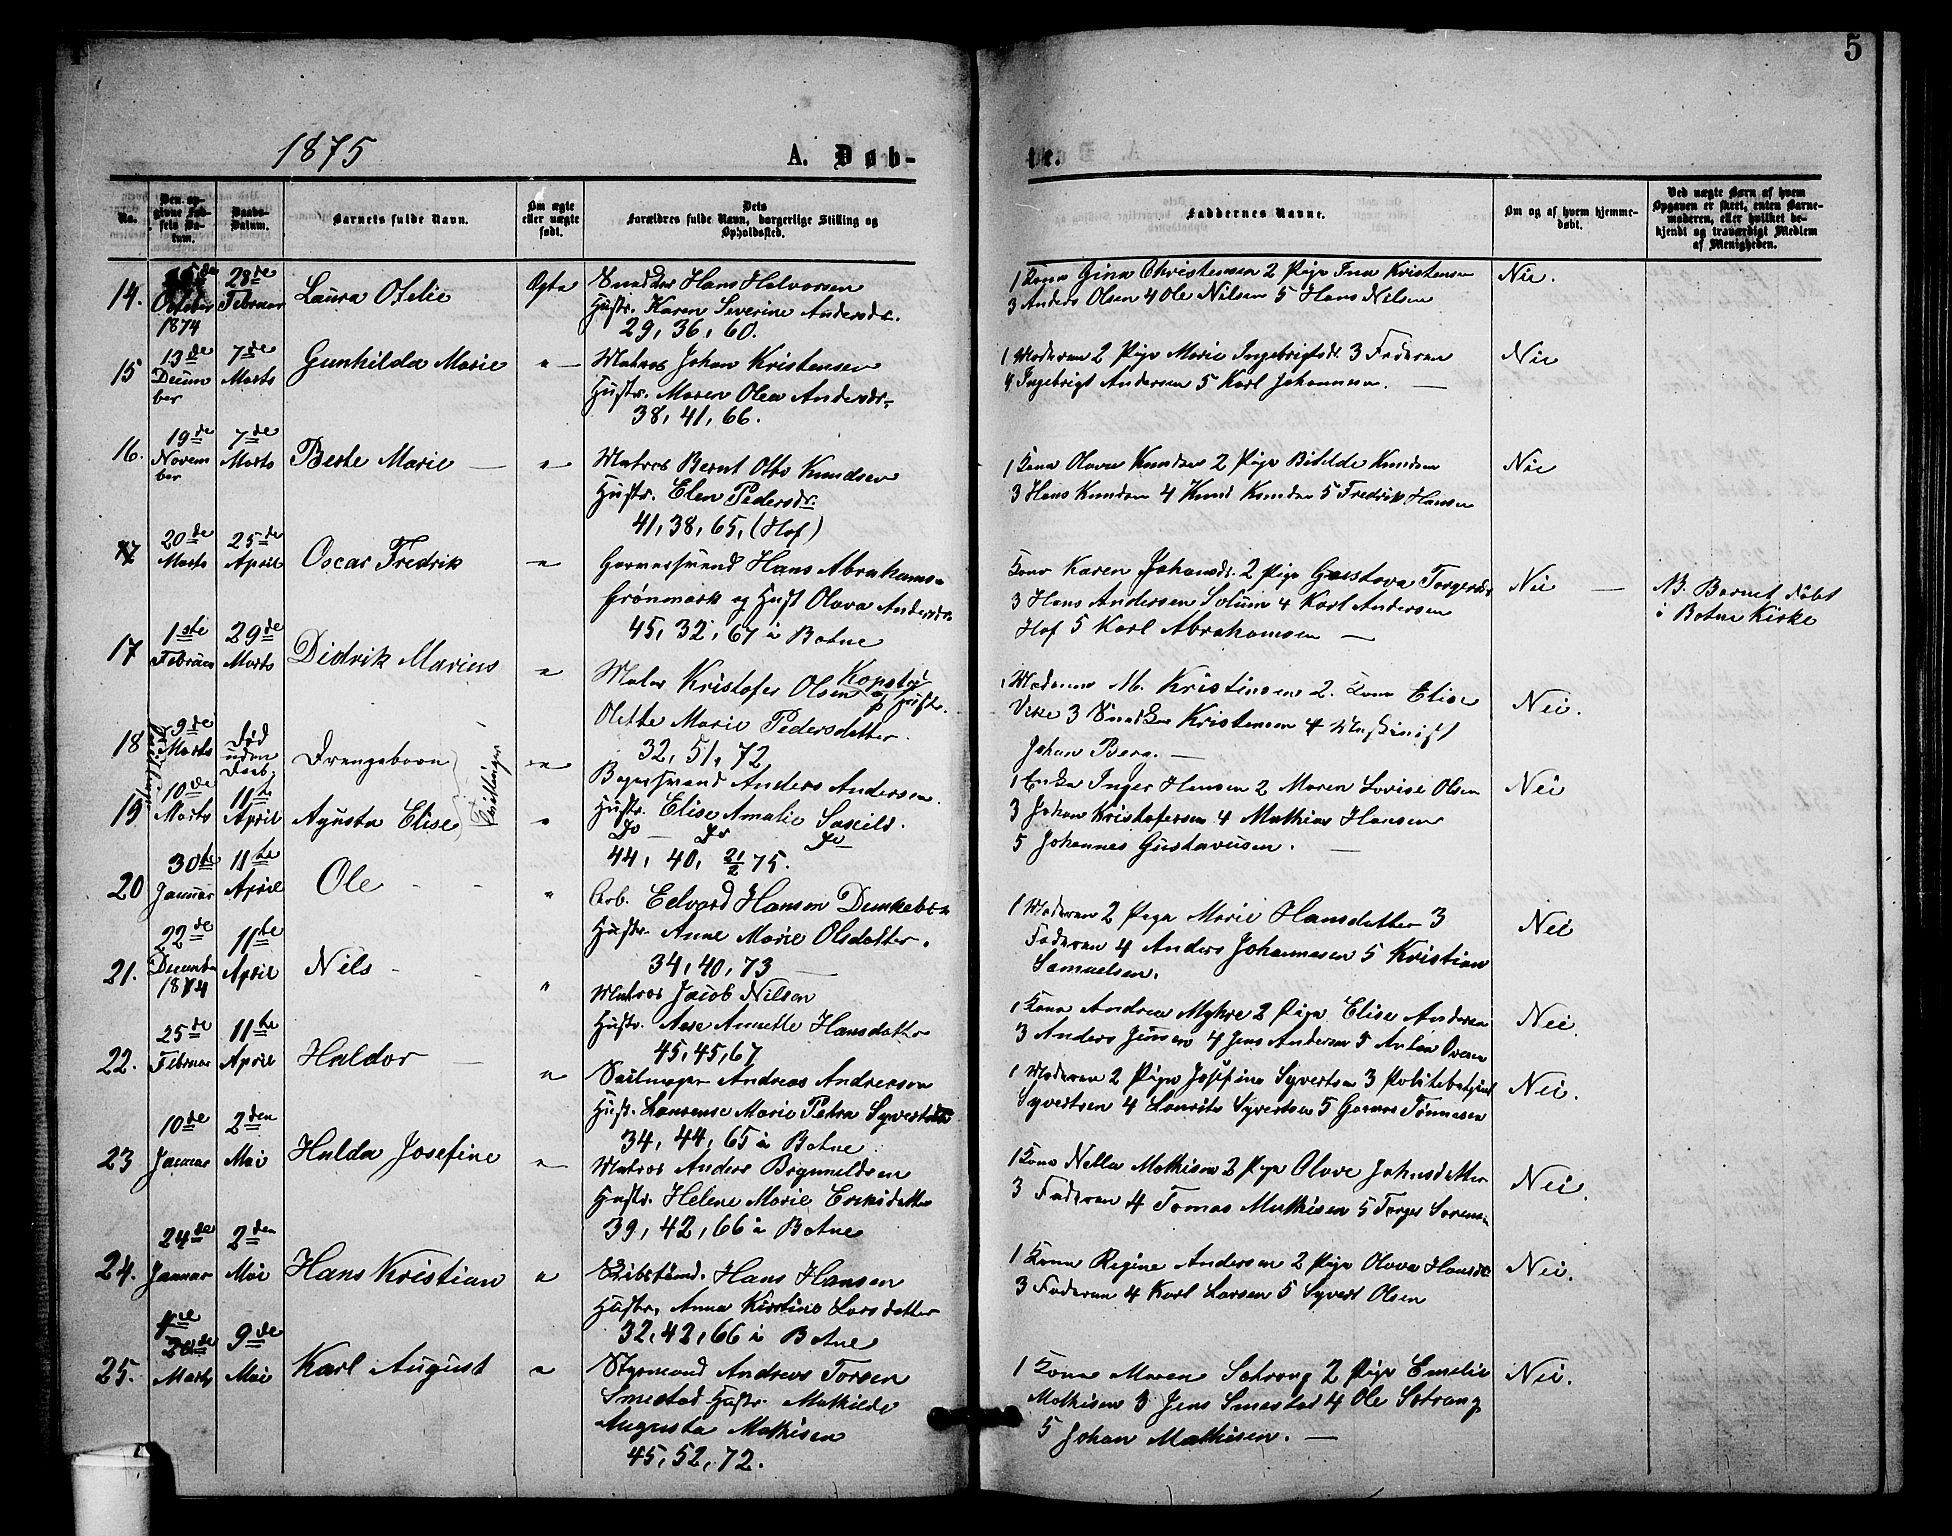 5
1875
A. Døb-
te.
No.
Den opgivne Fødsels Datum.
Daabs-Datum.
Barnets fulde Navn.
Om ægte eller uægte født.
Dets Forældres fulde Navn, borgerlige Stilling og Opholdssted.
Faddernes Navne.
Om og af hvem hjemmedøbt.
Ved uægte Børn af hvem Opgaven er skeet, enten Barnemoderen, eller hvilket bekjendt og troværdigt Medlem af Menigheden.
14.
October 1874
28de Februar
Laura Otelie
Ægte
Hans Halvorsen
Hustr. Karen Severine Andersdr.
29, 36, 60.
1 Kona Gina Christensen 2 Pige Kristensen
3 Anders Olsen 4 Ole Nilsen 5 Hans Nilsen
Nei.
15
13de December
7de Marts
Gunhilda Marie
"
Matros Johan Kristensen
Hustr. Maren Olea Andersdr.
38, 41, 66.
1 Moderen 2 Pige Marie Ingebrigtsdr. 3 Faderen
4 Ingebrigt Andersen 5 Karl Johannesen.
Nei
16.
19de November
7de Marts
Berte Marie
"
Matros Bernt Otto Knudsen
Hustr. Elen Pedersdr.
41, 38, 65, (Hof)
1 Kona Olava Knudsen 2 Pige Knudsen
3 Hans Knudsen 4 Knud Knudsen 5 Fredrik Hansen
Nei
20de Marts
25de April
Oscar Fredrik
"
Garversvend Hans Abrahams.
Grönmark og Hust Olava Andersdr.
45, 32, 67 i Botne
Kona Karen Johansdr. 2 Pige Gustava Torgersdr
3 Hans Andersen Solum 4 Karl Andersen
Hof 5 Karl Abrahamsen
Nei
NB. Barnet døbt
i Botne Kirke
17
1ste Februar
29de Marts
Didrik Marius
"
Maler Kristofer Olsen Kopstad og Hustr.
Olette Marie Pedersdatter.
32, 51, 72
1 Madame M. Kristensen 2. Kona Elise
3 Snedker Kristensen 4 Maskinist
Johan Berg.
Nei.
18
9de Marts
Død uden Daab
Drengebarn
Tvillinger
"
Bagersvend Anders Andersen.
Hustr. Elise Amalie
19
10de Marts
11te April
Agusta Elise
"
Do Do Do
44, 40, 21/2 75.
1 Enke Inger Hansen 2 Maren Lovise Olsen
3 Johan Kristofersen 4 Mathias Hansen
5 Johannes Gustavusen.
Nei
20
30te Januar
11te April
Ole
"
Arb. Edvard Hansen
Hustr. Anne Marie Olsdatter.
34, 40, 73
1 Moderen 2 Pige Marie Hansdatter 3
Faderen 4 Anders Johannesen 5 Kristian
Samuelsen.
Nei
21.
22de December 1874
11te April
Nils
"
Matros Jacob Nilsen
Hustr. Aase Annette Hansdatter
45, 45, 67
1 Kona Andrea Myhre 2 Pige Elise Andersen
3 Anders Jensen 4 Jens Andersen 5
Nei.
22.
25de Februar
11te April
Haldor
"
Seilmager Andreas Andresen
Hustr. Laurense Marie Petra Syvertsen
34, 44, 65 i Botne
1 Moderen 2 Pige Josefine Syvertsen 3 Politibetjent
Syvertsen 4 Laurits Syvertsen 5 Tönnesen
Nei.
23
10de Januar
2den Mai
Hulda Josefine
"
Matros Anders
Hustr. Helene Marie Eriksdatter
39, 42, 66 i Botne
1 Kona Nella Mathisen 2 Pige Olave Johnsdatter
3 Faderen 4 Tomas Mathisen 5 Torger Sorens.
Nei.
24.
24de Januar
2den Mai
Hans Kristian
"
Hans Hansen
Hustr. Anna Kirstine Larsdatter
32, 42, 66 i Botne
1 Kona Regine Andersen 2 Pige Olava Hansdr
3 Faderen 4 Karl Larsen 5 Syvert Olsen
Nei.
25.
Marts
9de Mai
Karl August
"
Styrmand Andreas Torsen
Smestad Hustr. Mathilde
Augusta Mathisen
45, 52, 72.
1 Kona Maren Satrang 2 Pige Emelie
Mathisen 3 Jens Smestad 4 Ole Satrang
5 Johan Mathisen.
Nei.